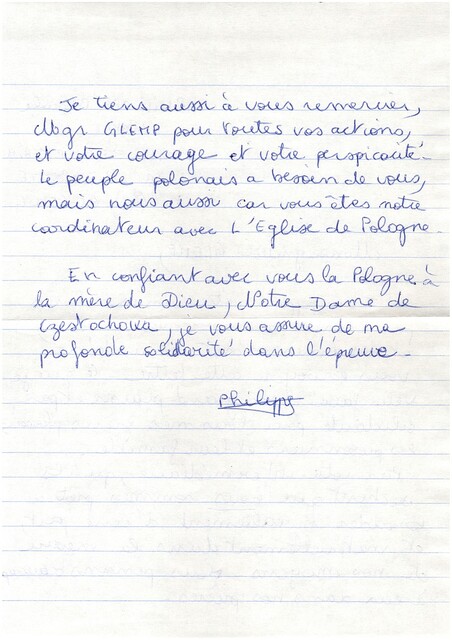 Je tiens aussi à vous remercier,
Mbgr GLEMP pour toutes vos actions,
et votre courage et votre perspicacité.
Le peuple polonais a besoin de vous,
mais nous aussi car vous êtes notre
cordinateur avec L'Eglise de Pologne.
En confiant avec vous la Pologne à
la mère de Dieu, Notre Dame de
Czestochowa, je vous assure de ma
profonde solidarité dans l'épreuve.
Philippe